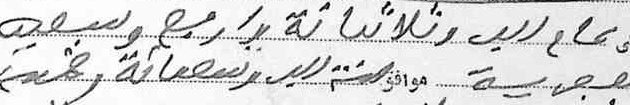 وعام الف وثلاثمائة واربع وسبعين
هجرية موافق لسنة الف وتسعمائة و